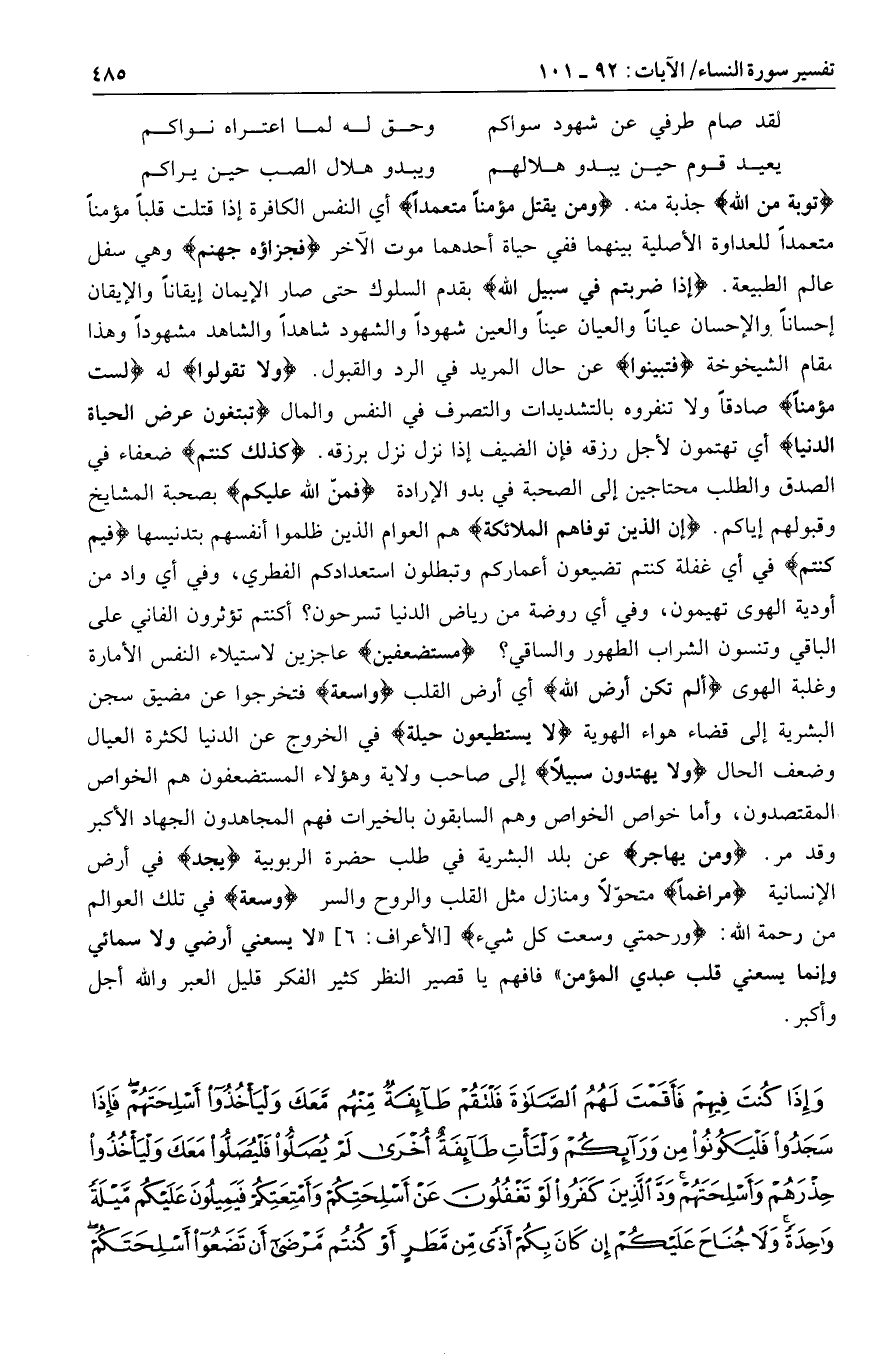 تفسير سورة النساء/ الآيات: ٩٢ ـ ١٠١ ٤٨٥
لقد صام طرفي عن شهود سواكم وحـق لـه لمـا اعتـراه نـواكـم
يعيـد قـوم حيـن يبـدو هـلالهـم ويبـدو هـلال الصـب حيـن يـراكـم
﴿توبة من الله﴾ جذبة منه. ﴿ومن يقتل مؤمناً متعمداً﴾ أي النفس الكافرة إذا قتلت قلباً مؤمناً
متعمداً للعداوة الأصلية بينهما ففي حياة أحدهما موت الآخر ﴿فجزاؤه جهنم﴾ وهي سفل
عالم الطبيعة. ﴿إذا ضربتم في سبيل الله﴾ بقدم السلوك حتى صار الإيمان إيقاناً والإيقان
إحساناً والإحسان عياناً والعيان عيناً والعين شهوداً والشهود شاهداً والشاهد مشهوداً وهذا
مقام الشيخوخة ﴿فتبينوا﴾ عن حال المريد في الرد والقبول. ﴿ولا تقولوا﴾ له ﴿لست
مؤمناً﴾ صادقاً ولا تنفروه بالتشديدات والتصرف في النفس والمال ﴿تبتغون عرض الحياة
الدنيا﴾ أي تهتمون لأجل رزقه فإن الضيف إذا نزل نزل برزقه. ﴿كذلك كنتم﴾ ضعفاء في
الصدق والطلب محتاجين إلى الصحبة في بدو الإرادة ﴿فمنّ الله عليكم﴾ بصحبة المشايخ
وقبولهم إياكم. ﴿إن الذين توفاهم الملائكة﴾ هم العوام الذين ظلموا أنفسهم بتدنيسها ﴿فيم
كنتم﴾ في أي غفلة كنتم تضيعون أعماركم وتبطلون استعدادكم الفطري، وفي أي واد من
أودية الهوى تهيمون، وفي أي روضة من رياض الدنيا تسرحون؟ أكنتم تؤثرون الفاني على
الباقي وتنسون الشراب الطهور والساقي؟ ﴿مستضعفين﴾ عاجزين لاستيلاء النفس الأمارة
وغلبة الهوى ﴿ألم تكن أرض الله﴾ أي أرض القلب ﴿واسعة﴾ فتخرجوا عن مضيق سجن
البشرية إلى قضاء هواء الهوية ﴿لا يستطيعون حيلة﴾ في الخروج عن الدنيا لكثرة العيال
وضعف الحال ﴿ولا يهتدون سبيلاً﴾ إلى صاحب ولاية وهؤلاء المستضعفون هم الخواص
المقتصدون، وأما خواص الخواص وهم السابقون بالخيرات فهم المجاهدون الجهاد الأكبر
وقد مر. ﴿ومن يهاجر﴾ عن بلد البشرية في طلب حضرة الربوبية ﴿يجد﴾ في أرض
الإنسانية ﴿مراغماً﴾ متحوّلاً ومنازل مثل القلب والروح والسر ﴿وسعة﴾ في تلك العوالم
من رحمة الله: ﴿ورحمتي وسعت كل شيء﴾ [الأعراف: ٦] «لا يسعني أرضي ولا سمائي
وإنما يسعني قلب عبدي المؤمن» فافهم يا قصير النظر كثير الفكر قليل العبر والله أجل
وأكبر.
وَإِذَا كُنتَ فِيهِمْ فَأَقَمْتَ لَهُمُ ٱلصَّلَوٰةَ فَلْتَقُمْ طَآئِفَةٌ مِّنْهُم مَّعَكَ وَلْيَأْخُذُوٓا۟ أَسْلِحَتَهُمْ ۖ فَإِذَا
سَجَدُوا۟ فَلْيَكُونُوا۟ مِن وَرَآئِكُمْ وَلْتَأْتِ طَآئِفَةٌ أُخْرَىٰ لَمْ يُصَلُّوا۟ فَلْيُصَلُّوا۟ مَعَكَ وَلْيَأْخُذُوا۟
حِذْرَهُمْ وَأَسْلِحَتَهُمْ ۗ وَدَّ ٱلَّذِينَ كَفَرُوا۟ لَوْ تَغْفُلُونَ عَنْ أَسْلِحَتِكُمْ وَأَمْتِعَتِكُمْ فَيَمِيلُونَ عَلَيْكُم مَّيْلَةً
وَٰحِدَةً ۚ وَلَا جُنَاحَ عَلَيْكُمْ إِن كَانَ بِكُمْ أَذًى مِّن مَّطَرٍ أَوْ كُنتُم مَّرْضَىٰٓ أَن تَضَعُوٓا۟ أَسْلِحَتَكُمْ ۖ